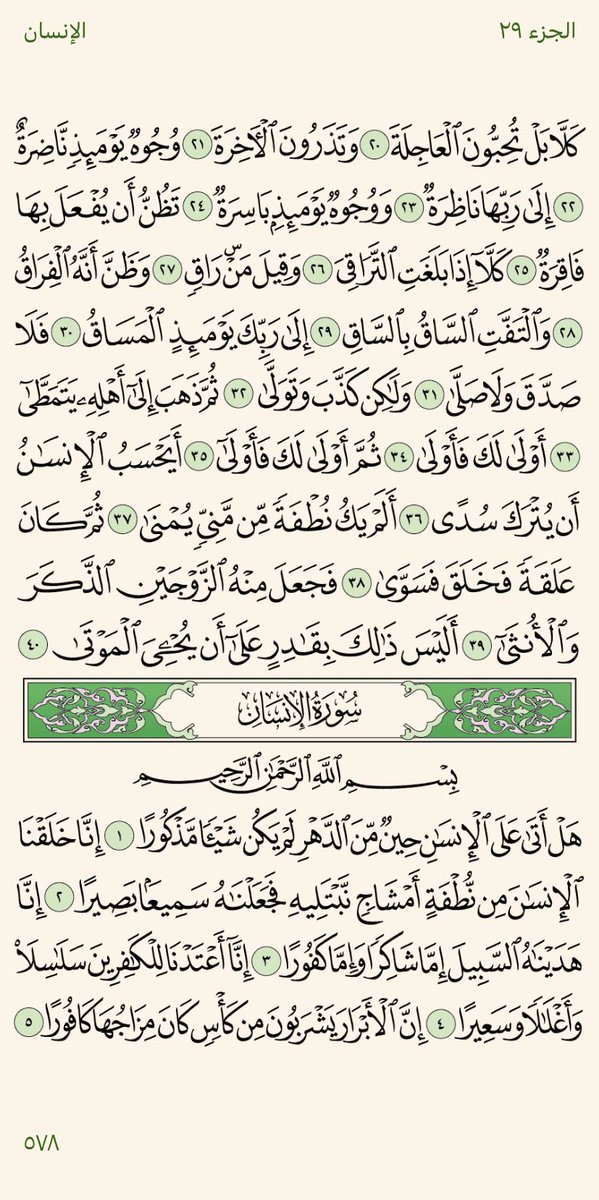 الجزء ٢٩
الإنسان
كَلَّا بَلْ تُحِبُّونَ ٱلْعَاجِلَةَ ٢٠ وَتَذَرُونَ ٱلْأٓخِرَةَ ٢١ وُجُوهٌ يَوْمَئِذٍ نَّاضِرَةٌ
٢٢ إِلَىٰ رَبِّهَا نَاظِرَةٌ ٢٣ وَوُجُوهٌ يَوْمَئِذٍۭ بَاسِرَةٌ ٢٤ تَظُنُّ أَن يُفْعَلَ بِهَا
فَاقِرَةٌ ٢٥ كَلَّآ إِذَا بَلَغَتِ ٱلتَّرَاقِيَ ٢٦ وَقِيلَ مَنْۜ رَاقٍ ٢٧ وَظَنَّ أَنَّهُ ٱلْفِرَاقُ
٢٨ وَٱلْتَفَّتِ ٱلسَّاقُ بِٱلسَّاقِ ٢٩ إِلَىٰ رَبِّكَ يَوْمَئِذٍ ٱلْمَسَاقُ ٣٠ فَلَا
صَدَّقَ وَلَا صَلَّىٰ ٣١ وَلَٰكِن كَذَّبَ وَتَوَلَّىٰ ٣٢ ثُمَّ ذَهَبَ إِلَىٰٓ أَهْلِهِۦ يَتَمَطَّىٰٓ
٣٣ أَوْلَىٰ لَكَ فَأَوْلَىٰ ٣٤ ثُمَّ أَوْلَىٰ لَكَ فَأَوْلَىٰٓ ٣٥ أَيَحْسَبُ ٱلْإِنسَٰنُ
أَن يُتْرَكَ سُدًى ٣٦ أَلَمْ يَكُ نُطْفَةً مِّن مَّنِيٍّ يُمْنَىٰ ٣٧ ثُمَّ كَانَ
عَلَقَةً فَخَلَقَ فَسَوَّىٰ ٣٨ فَجَعَلَ مِنْهُ ٱلزَّوْجَيْنِ ٱلذَّكَرَ
وَٱلْأُنثَىٰٓ ٣٩ أَلَيْسَ ذَٰلِكَ بِقَٰدِرٍ عَلَىٰٓ أَن يُحْـِۧيَ ٱلْمَوْتَىٰ ٤٠
سُورَةُ الإِنسَانِ
بِسْمِ ٱللَّهِ ٱلرَّحْمَٰنِ ٱلرَّحِيمِ
هَلْ أَتَىٰ عَلَى ٱلْإِنسَٰنِ حِينٌ مِّنَ ٱلدَّهْرِ لَمْ يَكُن شَيْـًٔا مَّذْكُورًا ١ إِنَّا خَلَقْنَا
ٱلْإِنسَٰنَ مِن نُّطْفَةٍ أَمْشَاجٍ نَّبْتَلِيهِ فَجَعَلْنَٰهُ سَمِيعَۢا بَصِيرًا ٢ إِنَّا
هَدَيْنَٰهُ ٱلسَّبِيلَ إِمَّا شَاكِرًا وَإِمَّا كَفُورًا ٣ إِنَّآ أَعْتَدْنَا لِلْكَٰفِرِينَ سَلَٰسِلَا۟
وَأَغْلَٰلًا وَسَعِيرًا ٤ إِنَّ ٱلْأَبْرَارَ يَشْرَبُونَ مِن كَأْسٍ كَانَ مِزَاجُهَا كَافُورًا ٥
٥٧٨